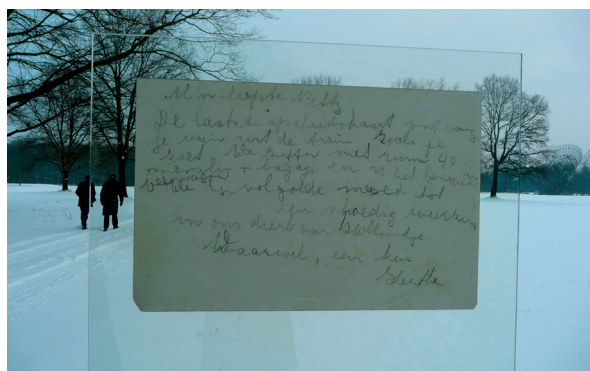 Mijn liefste Netty
De laatste afscheidskaart
je uit de trein zoals je
ziet. We zitten met ruim 40
mensen + bagage in
We zijn vol goede moed tot
een spoedig weerzien
in ons dierbaar Hollandje
Vaarwel, een kus